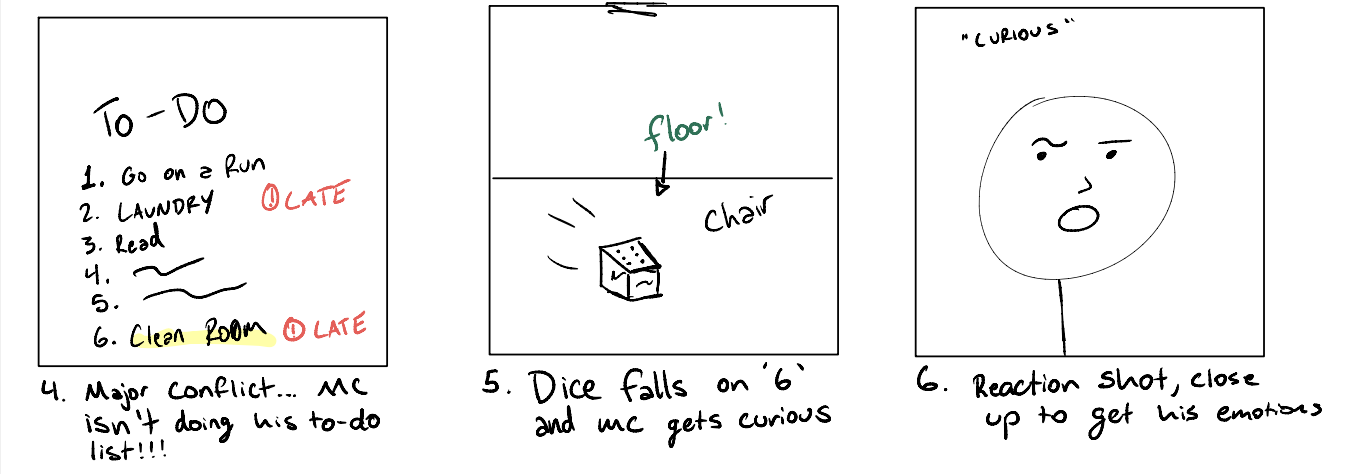 To-Do
1. Go on a Run
2. LAUNDRY ! LATE
3. Read
4.
5.
6. Clean Room ! LATE
4. Major conflict... MC
isn't doing his to-do
list!!!
floor!
Chair
5. Dice falls on '6'
and mc gets curious
"CURIOUS"
6. Reaction shot, close
up to get his emotions